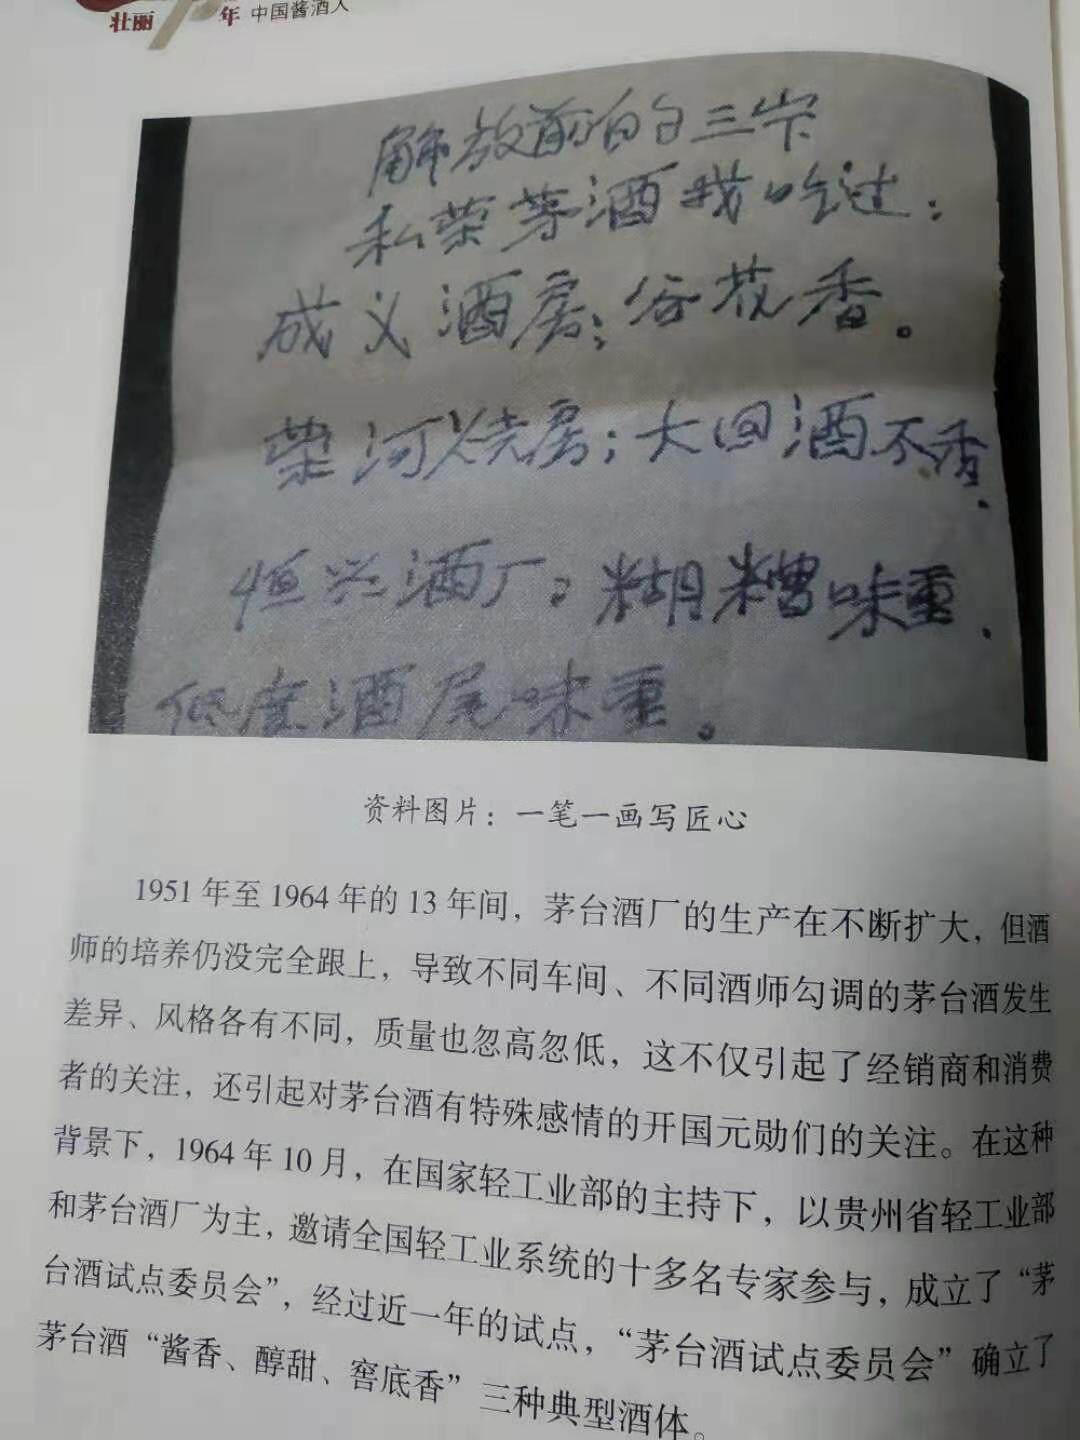 壮丽
年 中国酱酒人
解放前的三家
私营茅酒我吃过:
成义酒房;谷花香。
荣河烧房;大回酒不香.
恒兴酒厂;糊糟味重.
低度酒尾味重。
资料图片：一笔一画写匠心
1951年至1964年的13年间，茅台酒厂的生产在不断扩大，但酒
师的培养仍没完全跟上，导致不同车间、不同酒师勾调的茅台酒发生
差异、风格各有不同，质量也忽高忽低，这不仅引起了经销商和消费
者的关注，还引起对茅台酒有特殊感情的开国元勋们的关注。在这种
背景下，1964年10月，在国家轻工业部的主持下，以贵州省轻工业部
和茅台酒厂为主，邀请全国轻工业系统的十多名专家参与，成立了“茅
台酒试点委员会”，经过近一年的试点，“茅台酒试点委员会”确立了
茅台酒“酱香、醇甜、窖底香”三种典型酒体。